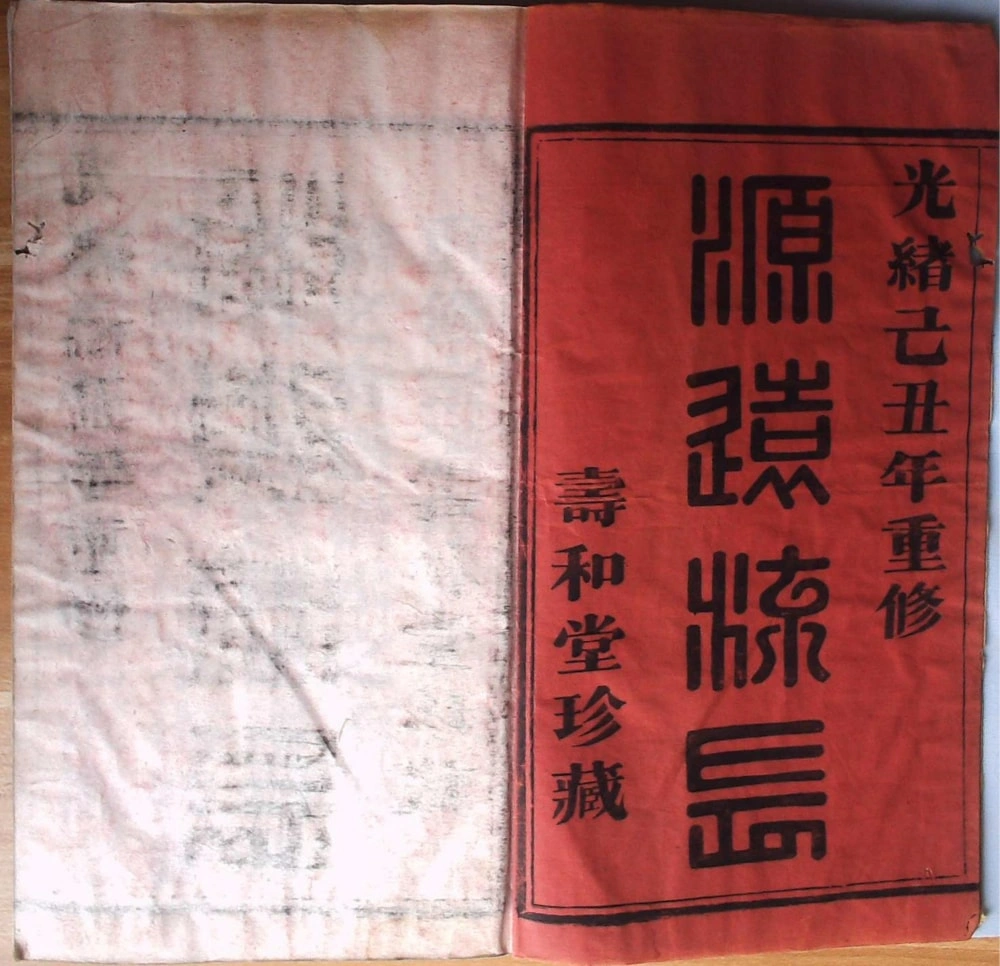 光緒己丑年重修
源遠流長
壽和堂珍藏